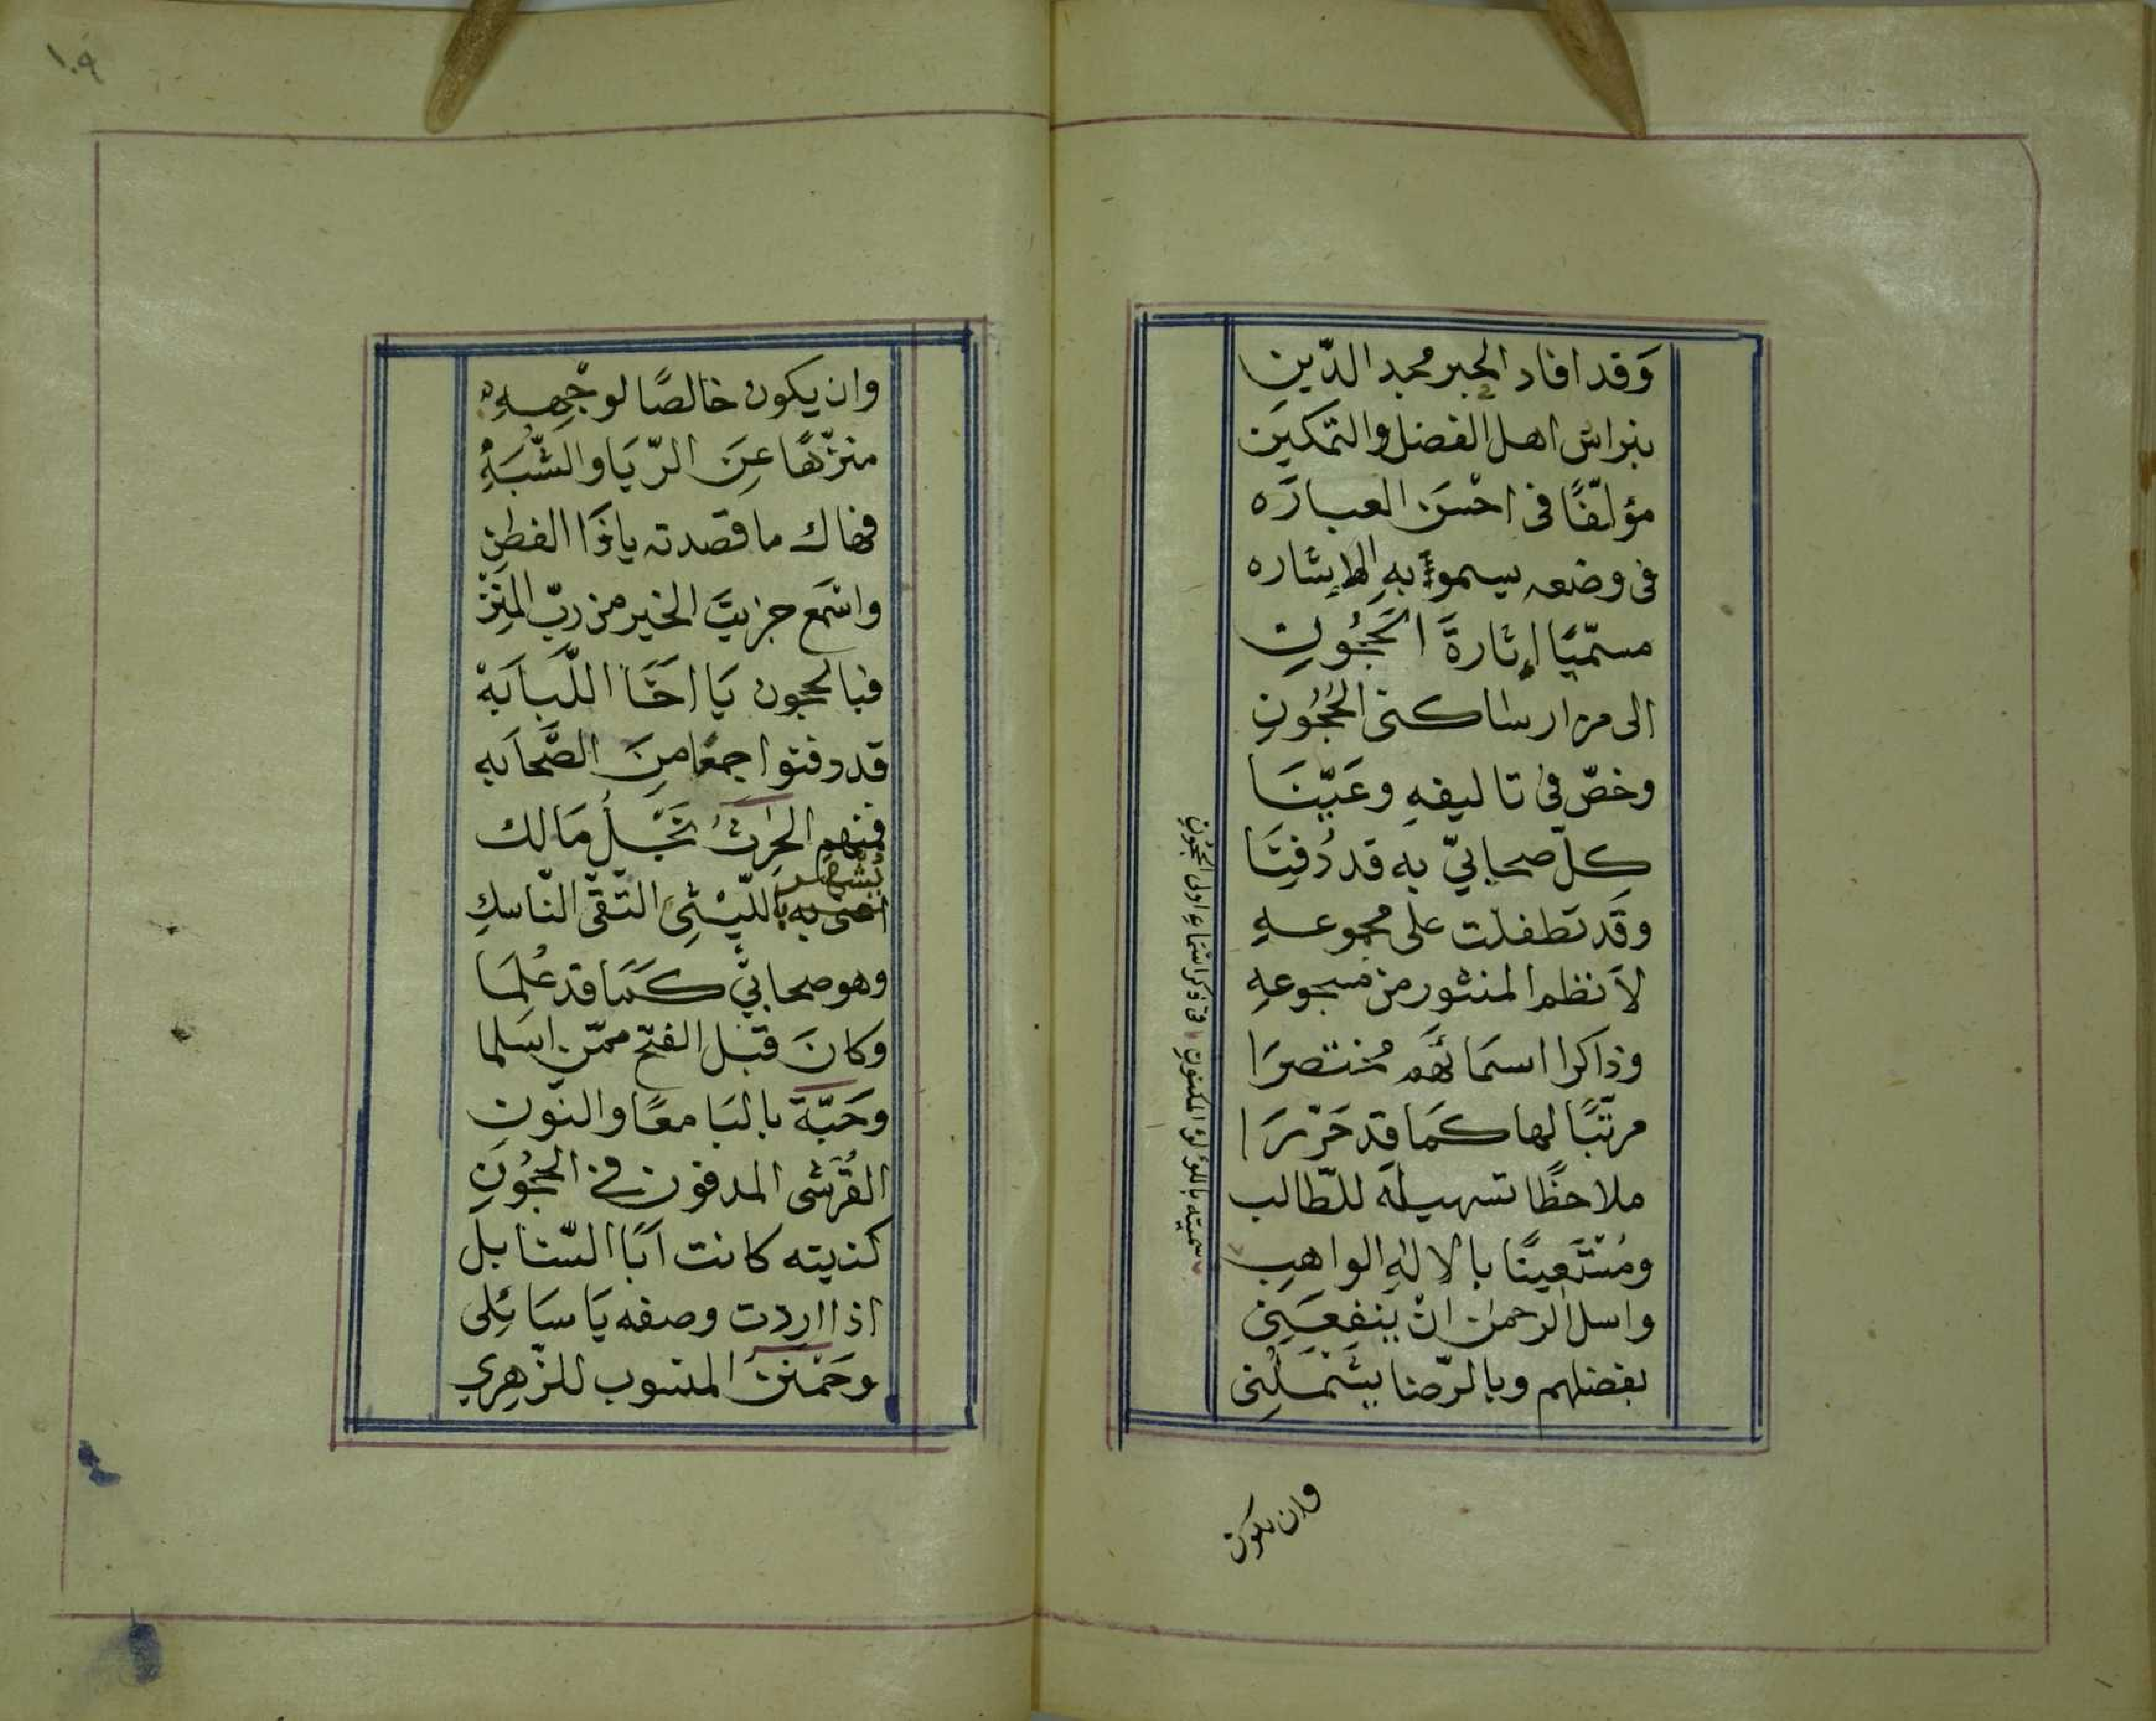 وَقد افاد الحبر مجد الدّين
نبراس اهل الفضل والتمكين
مؤلّفًا فى احْسَن العبارَه
فى وضعه يسمو به الإشاره
مسمّيًا إثارةَ الحُجُونِ
الى مزار ساكنى الحُجُونِ
وخصّ فى تاليفهِ وعَيّنَا
كلّ صحابيّ به قد دُفِنَا
وقَد تطفلت على مجموعهِ
لاَنظم المنثور من مسجوعهِ
وذاكرا اسمَائهَم مختصرَا
مرتّبًا لها كمَا قد حَرّرَا
ملاحظًا تسهيلَه للطّالب
ومُسْتَعينًا بالالهِ الواهبِ
واسل الرحمن انْ يَنفعَنِى
بفضلهم وبالرّضا يشْمَلُنِى
سميته باللؤلؤ المكنونِ فى ذكر اسْمَاءِ اولى الحجُونِ
وان يكون
١٠٩
وان يكون خالصًا لوجْهِهِ
منزّهًا عَنِ الرّيَا والشّبَهِ
فهاك ما قصدته ياذَا الفطن
واسْمع جزيتَ الخير من ربّ المنَنْ
فبالحجون يَا اخَا اللّبَابَهْ
قد دفنوا جمعًا مِنَ الصَّحَابه
فمنهم الحَرثُ نَجْلُ مَالك
يُشهر باللّيْثِىّ التّقى النّاسكِ
وهو صحابيّ كمَا قد عُلِمَا
وكانَ قبْل الفتْح ممّن اسَلما
وحَبّةَ بالبَا معًا والنّونِ
القُرَشى المدفون فى الحجُونِ
كنيته كانت ابَا السّنَابل
اذا اردت وصفه يَا سَائلِى
وحَمْنَنَ المنسوب للزّهري